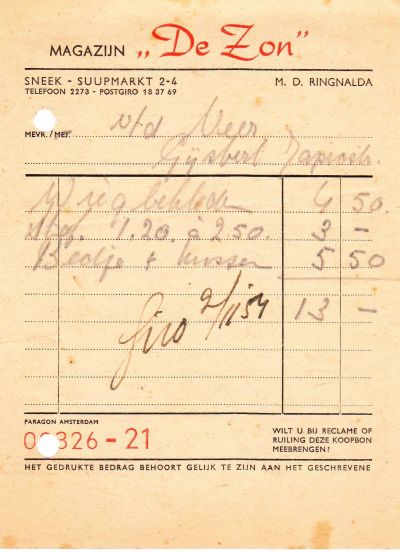 MAGAZIJN „De Zon"
SNEEK - SUUPMARKT 2-4 M. D. RINGNALDA
TELEFOON 2273 - POSTGIRO 18 37 69
MEVR. / MEJ. v/d Veer
Gijsbert Japicxstr.
Wiegbekleden 4 50.
Stof. 1.20. à 2 50. 3 –
Bedje + kussen 5 50
13 –
Giro 2/11 54
PARAGON AMSTERDAM
326 - 21
WILT U BIJ RECLAME OF
RUILING DEZE KOOPBON
MEEBRENGEN!
HET GEDRUKTE BEDRAG BEHOORT GELIJK TE ZIJN AAN HET GESCHREVENE